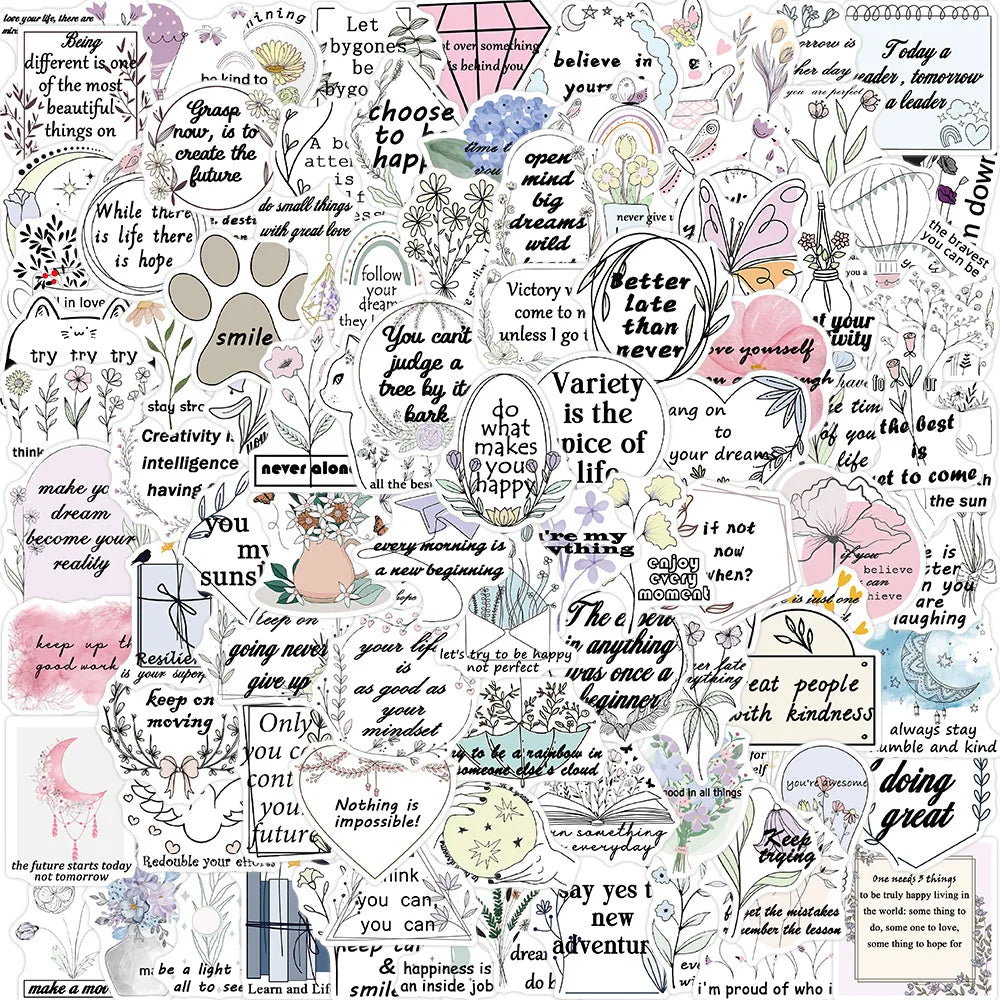 love your life, there are
Being
different is one
of the most
beautiful
things on
be kind to
Let
bygones
be
bygo
t over something
is behind you
believe in
yours
rrow is
her day
you are perfect
Today a
reader, tomorrow
a leader
Grasp
now, is to
create the
future
choose
to b
happ
time t
you
open
mind
big
dreams
wild
While there
is life there
is hope
do small things
with great love
never give u
n down
the bravest
you can be
you a
follow
your
dream
they
Victory w
come to n
unless I go t
Better
late
than
never
in love
try try try
smile
You can't
judge a
tree by its
bark
ove yourself
ugh
ut your
tivity
do
what
makes
you
happy
Variety
is the
pice of
life
ang on
to
your dreams
have
e tim
of you
life
the best
is
yet to come
the sun
think
stay stro
Creativity i
intelligence
having
never alone
all the bes
make yo
dream
become your
reality
you
my
suns
every morning is
a new beginning
hope
're my
ything
enjoy
every
moment
if not
now
when?
if you
believe
can
hieve
e is just one
e is
tter
n you
are
laughing
keep up th
good work
Resilie
is your super
keep on
going never
give up
your life
is
as good as
your
mindset
let's try to be happy
not perfect
The expert
in anything
was once a
beginner
er late
ything
eat people
with kindness
always stay
umble and kind
keep on
moving
Only
you ca
cont
you
future
y to be a rainbow in
someone else's cloud
ood in all things
you're awesome
doing
great
the future starts today
not tomorrow
Redouble your efforts
Nothing is
impossible!
rn something
everyday
Keep
trying
think
you can,
you can
say yes t
new
adventur
get the mistakes
ember the lesson
One needs 3 things
to be truly happy living in
the world: some thing to
do, some one to love,
some thing to hope for
make a mo
be a light
all to see
Learn and Lif
keep cal
&
smile
happiness is
an inside job
drea
do b
i'm proud of who i